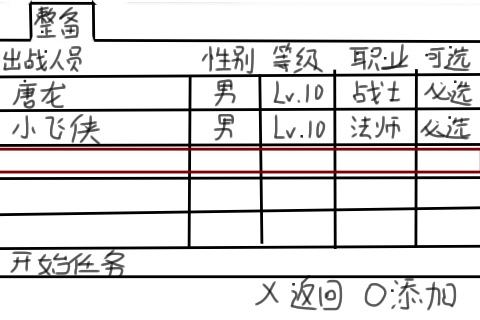 整备
出战人员 性别 等级 职业 可选
唐龙 男 Lv.10 战士 必选
小飞侠 男 Lv.10 法师 必选
开始任务
X返回 O添加